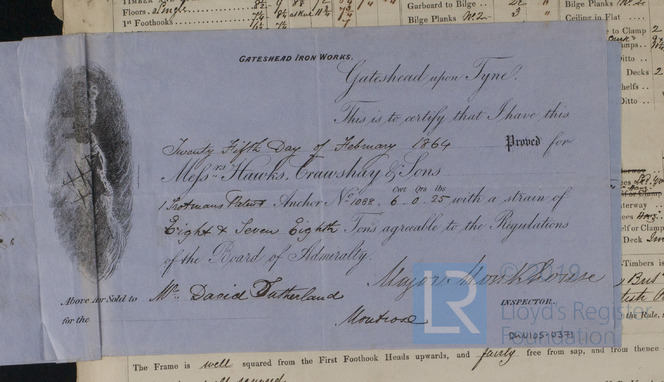 Floors
1st Foothooks
Garboard to Bilge
Bilge Planks
Bilge Planks
Ceiling in Flat
GATESHEAD IRON WORKS.
Gateshead upon Tyne.
This is to certify that I have this
Twenty Fifth Day of February 1864 Proved for
Messrs Hawks, Crawshay & Sons
1 Trotmans Patent Anchor No. 1088. Cwt 6 Qrs 0 lbs 25 with a strain of
Eight & Seven Eighth Tons agreeable to the Regulations
of the Board of Admiralty.
Major Monkhouse
INSPECTOR.
Above are Sold to Mr. David Sutherland
for the Montrose
© 2019
LR Lloyd's Register
Foundation
The Frame is well squared from the First Foothook Heads upwards, and fairly free from sap, and from thence